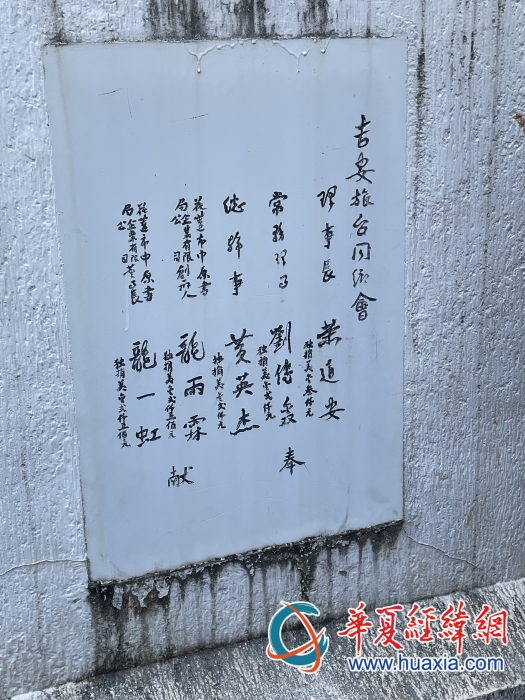 吉安旅台同鄉會
理事長 葉道安
独捐美金叁仟元
常務理事 劉傳鑫 奉
独捐美金弍仟元
總幹事 黃英杰
独捐美金弍仟元
花蓮市中原書局企業有限公司創辦人 龍雨霖 献
独捐美金弍仟五佰元
花蓮市中原書局企業有限公司董事長 龍一虹
独捐美金弍仟五佰元
華夏經緯網
www.huaxia.com